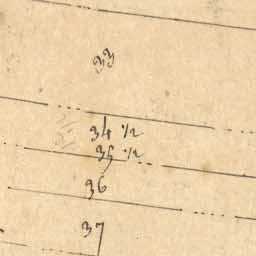 33
34 1/2
35 1/2
36
37